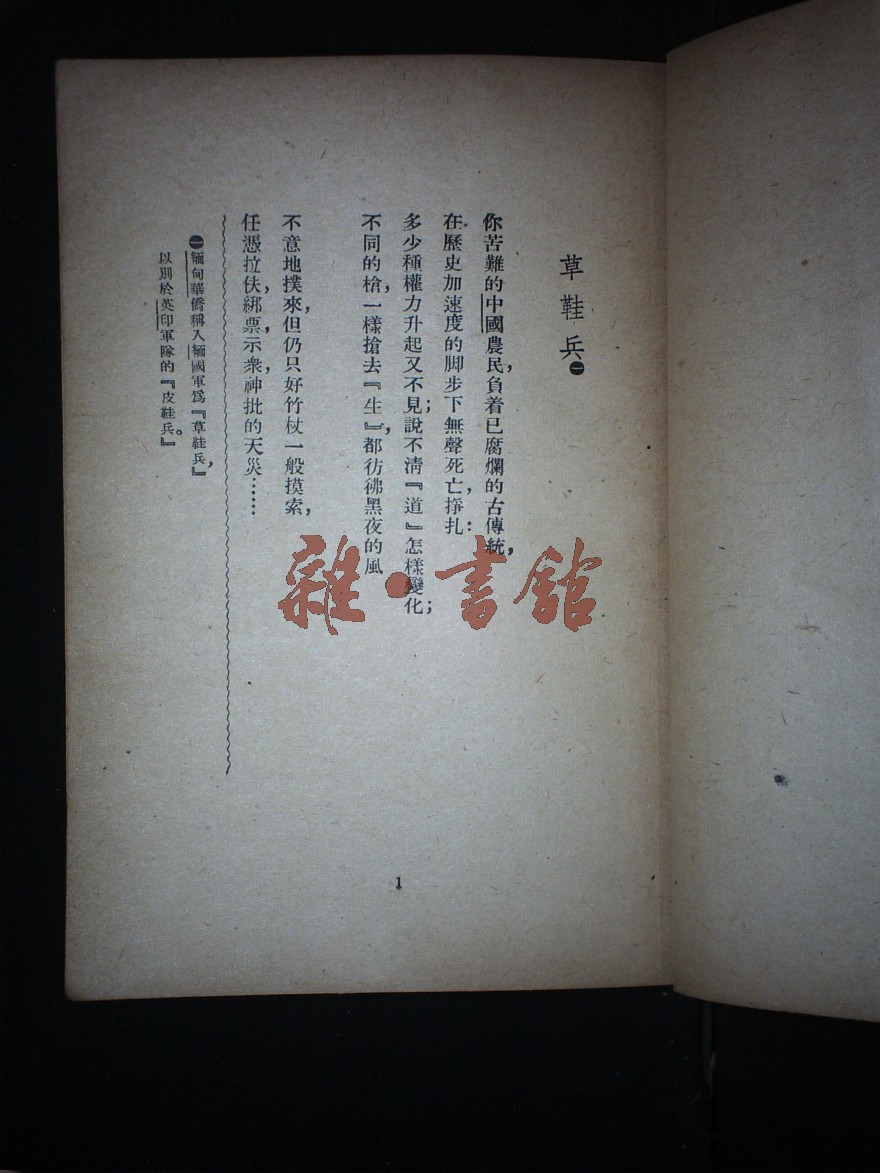 草鞋兵㊀
你苦難的中國農民，負着已腐爛的古傳統，
在歷史加速度的脚步下無聲死亡，掙扎：
多少種權力升起又不見；說不清『道』怎樣變化；
不同的槍，一樣搶去『生』，都彷彿黑夜的風
不意地撲來，但仍只好竹杖一般摸索，
任憑拉伕，綁票，示衆，神批的天災……
㊀緬甸華僑稱入緬國軍爲『草鞋兵』，
以別於英印軍隊的『皮鞋兵』。
1
雜·書館